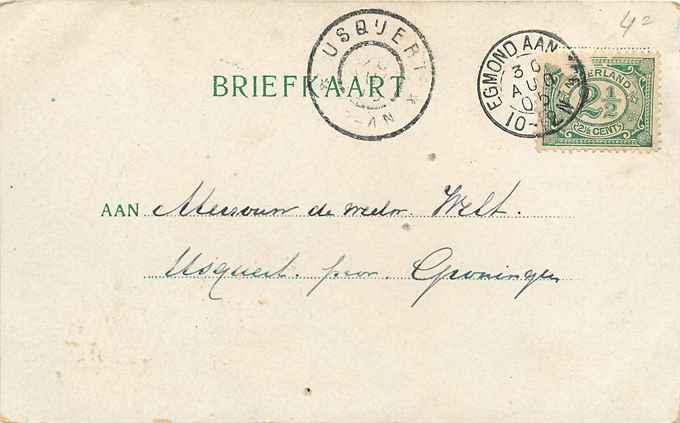 4²
USQUERT
EGMOND AAN
30
AUG
05
10-
N
NEDERLAND
2½
2½ CENT
BRIEFKAART
AAN Mevrouw de wedw. Welt.
Usquert. prov. Groningen